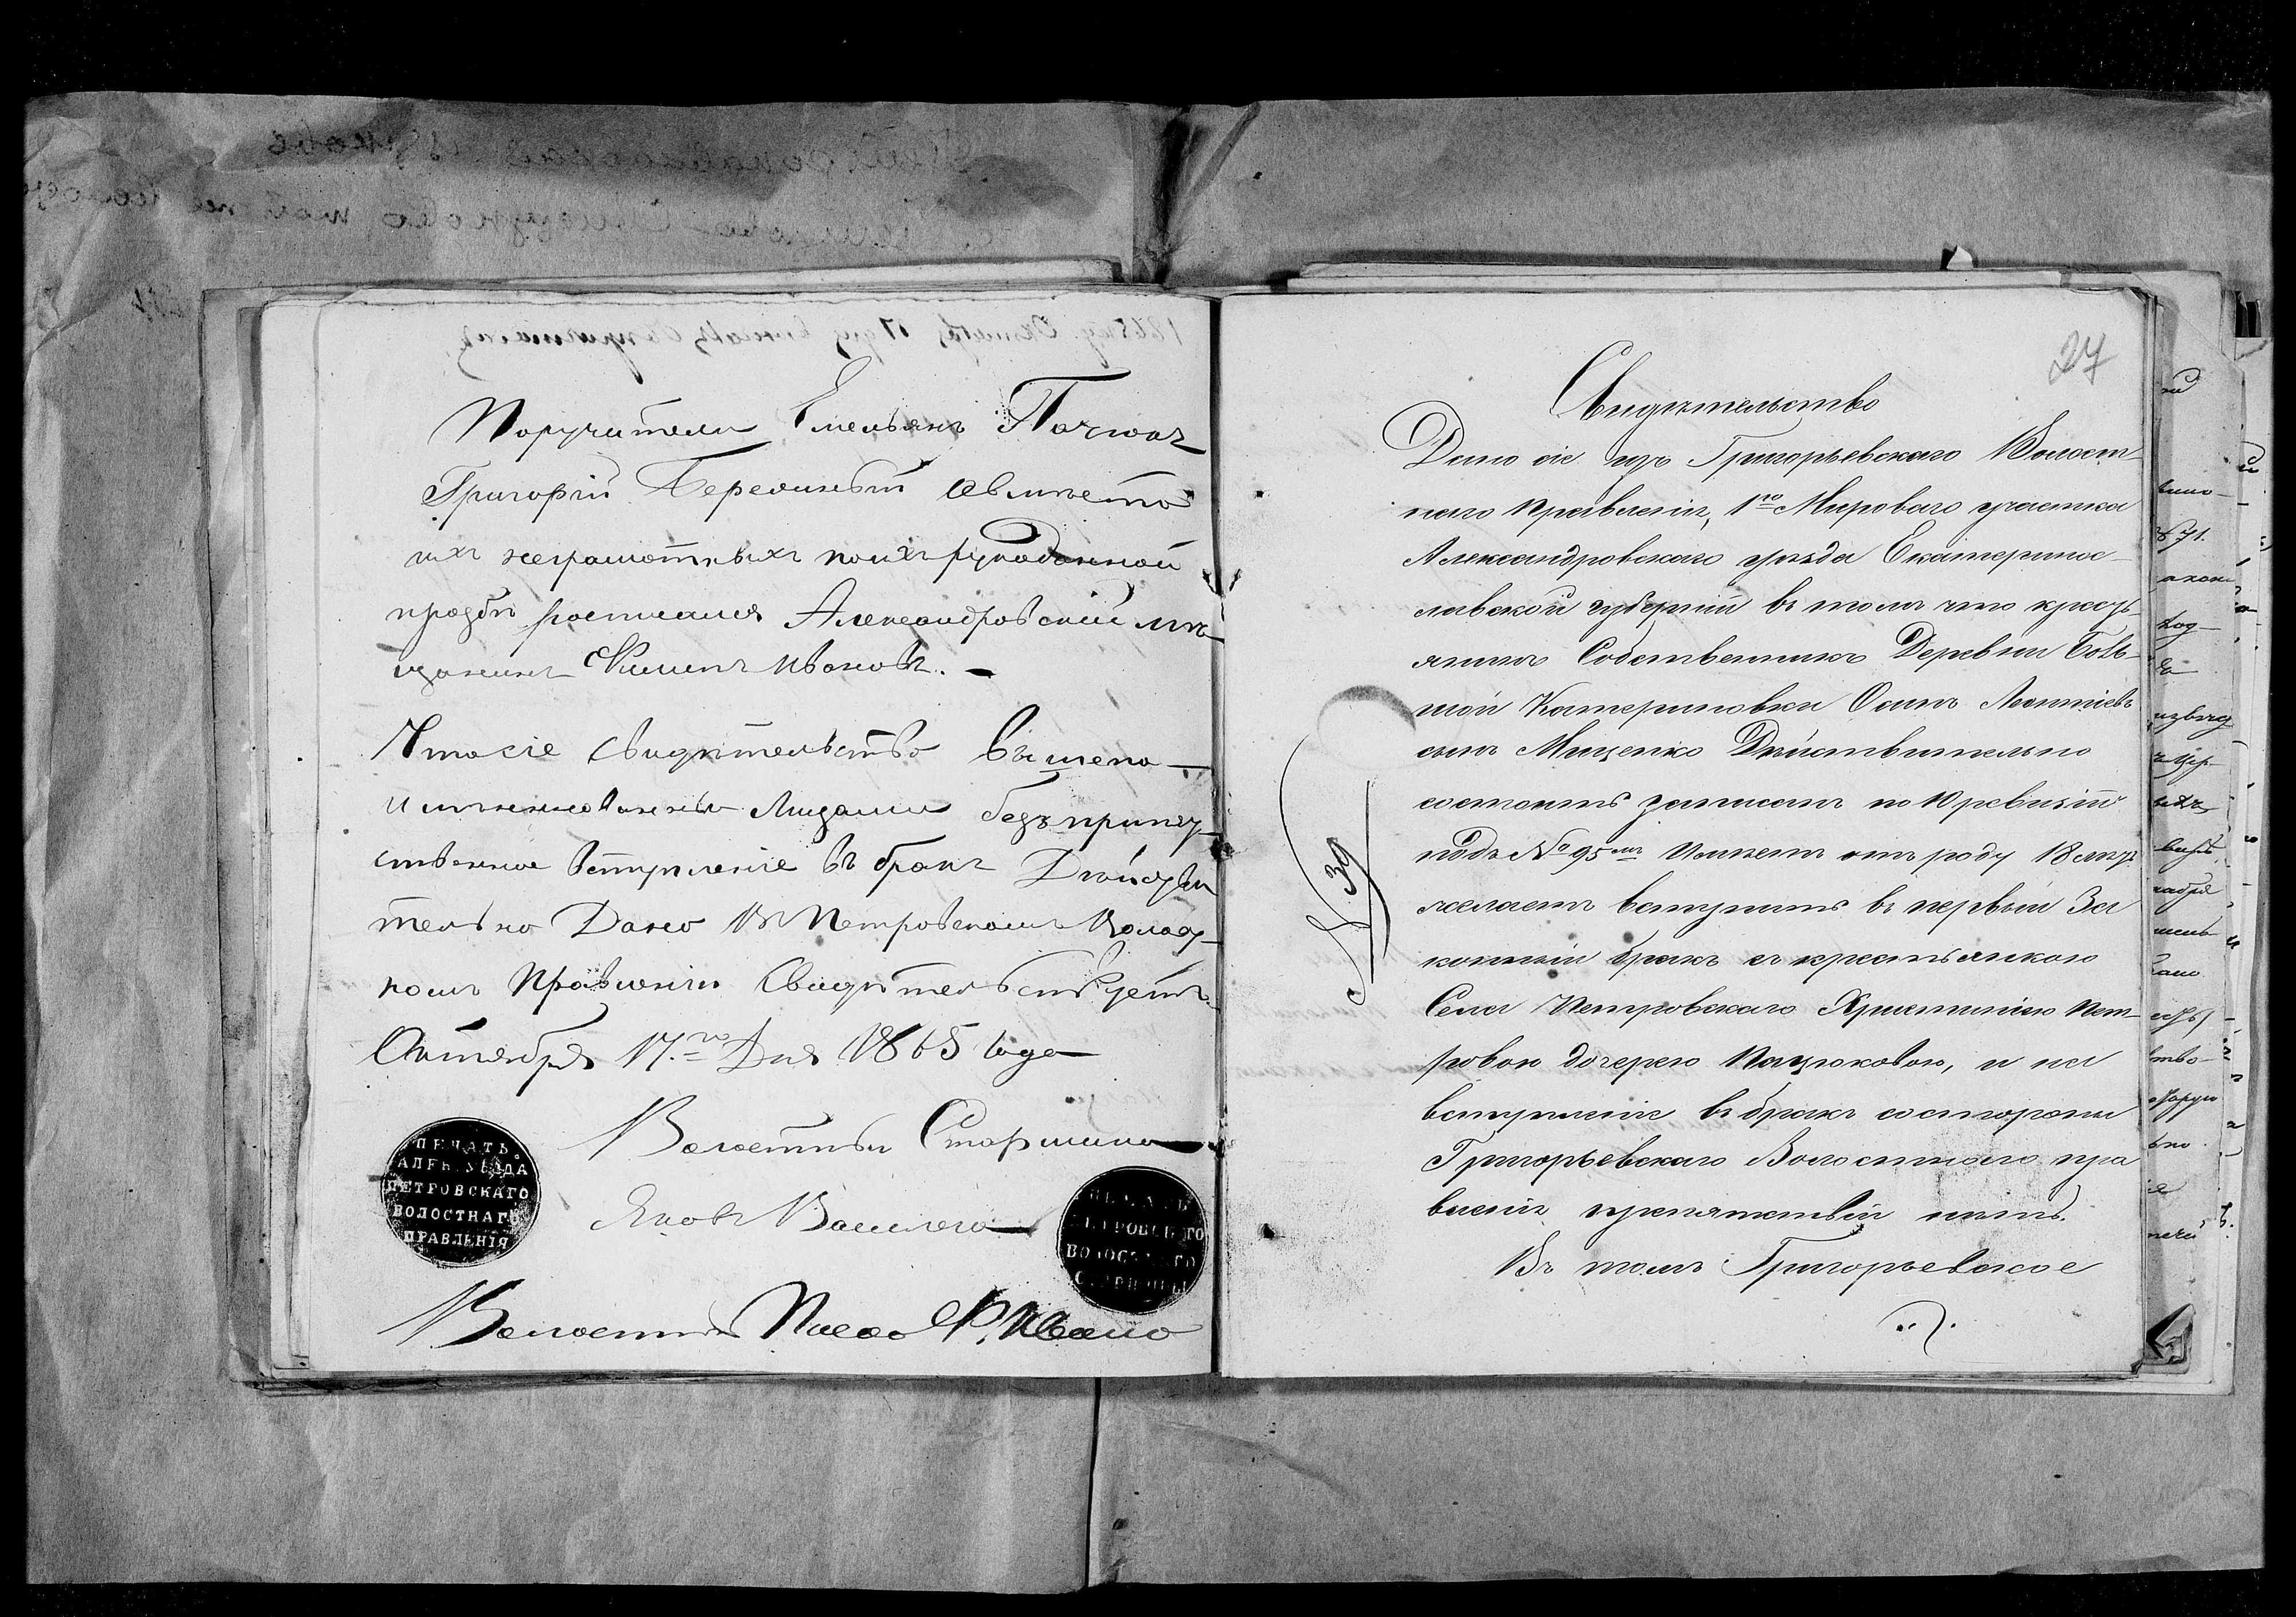 Поручители Емельянъ
Григорій Бережный авместо
ихъ неграмотныхъ поихъ рукоданной
прозбѣ росписался Александровскій мѣ-
щанинъ Филипъ Ивановъ. —
Что сіе свидѣтельство вышепо-
именнованнымъ Лицами безъ припят-
ственное вступленіе въ бракъ Дѣйстви
тельно Дано Въ Петровскомъ Волост-
номъ Правленіи Свидѣтельствуетъ
Октября 17.го Дня 1865 года
Волостный Старшина
Яковъ
ПЕЧАТЬ
АЛЕК. УѢЗДА
ПЕТРОВСКАГО
ВОЛОСТНАГО
ПРАВЛЕНІЯ
ПЕЧАТЬ
ПЕТРОВСКАГО
ВОЛОСТНАГО
СТАРШИНЫ
Волостный Писарь Ф. Ивано
27
Свидѣтельство
Дано сіе изъ Григорьевскаго Волост-
наго Правленія, 1го Мироваго участка
Александровскаго уѣзда Екатеринос-
лавской губерніи въ томъ что кресть
янинъ Собственникъ Деревни Боль-
шой Катериновки Осипъ Леонтіевъ
сынъ Мищенко Дѣйствительно
состоитъ записанъ по 10 ревизіи
подъ № 95мъ Имѣетъ отъ роду 18 лѣтъ
желаетъ вступить въ первый За
конный бракъ съ крестьянкою
Села Петровскаго Христиніею Пет-
ровою дочерею Пацюковою, и на
вступленіе въ бракъ состороны
Григорьевскаго Волостнаго пра
вленія препятствій нѣтъ.
Въ томъ Григорьевское
№ 39